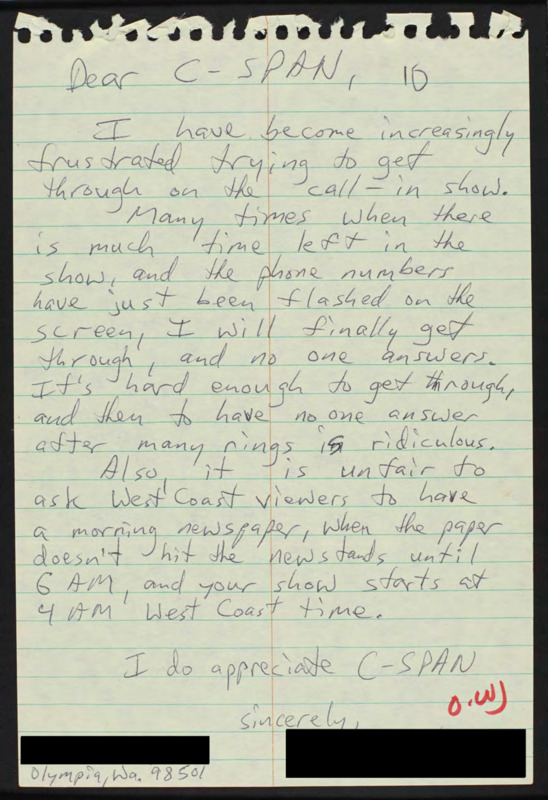 Dear C-SPAN, 10
I have become increasingly
frustrated trying to get
through on the call-in show.
Many times when there
is much time left in the
show, and the phone numbers
have just been flashed on the
screen, I will finally get
through, and no one answers.
It's hard enough to get through,
and then to have no one answer
after many rings is ridiculous.
Also, it is unfair to
ask West Coast viewers to have
a morning newspaper, when the paper
doesn't hit the newstands until
6 AM, and your show starts at
4 AM West Coast time.
I do appreciate C-SPAN
O.W)
sincerely,
Olympia, Wa. 98501